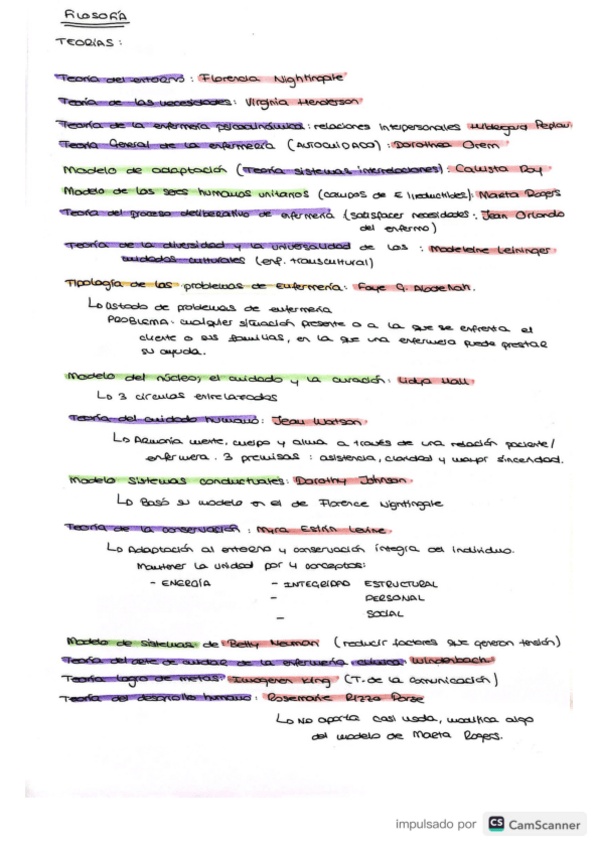 FILOSOFÍA
TEORÍAS:
Teoría del entorno: Florencia Nightingale
Teoría de las necesidades: Virginia Henderson
Teoría de la enfermería psicodinámica: relaciones interpersonales Hildegard Peplau
Teoría General de la enfermería (AUTOCUIDADO): Dorothea Orem
Modelo de adaptación (Teoría sistemas interrelaciones): Callista Roy
Modelo de los seres humanos unitarios (campos de E irreductibles): Marta Rogers
Teoría del proceso deliberativo de enfermería (satisfacer necesidades: Jean Orlando
del enfermo)
Teoría de la diversidad y la universalidad de los : Madeleine Leininger
cuidados culturales (enf. transcultural)
Tipología de los problemas de Enfermería: Faye G. Abdellah.
Listado de problemas de enfermería
PROBLEMA: cualquier situación presente o a la que se enfrenta el
cliente o sus familias, en la que una enfermera puede prestar
su ayuda.
Modelo del núcleo, el cuidado y la curación: Lidya Hall
3 círculos entrelazados
Teoría del cuidado humano: Jean Watson
Armonía mente, cuerpo y alma a través de una relación paciente/
enfermera. 3 premisas: asistencia, claridad y mayor sinceridad.
Modelo Sistemas conductuales: Dorothy Johnson
Basó su modelo en el de Florence Nightingale
Teoría de la conservación: Myra Estrin Levine
Adaptación al entorno y conservación íntegra del individuo.
Mantener la unidad por 4 conceptos:
- ENERGÍA - INTEGRIDAD ESTRUCTURAL
- PERSONAL
- SOCIAL
Modelo de sistemas de Betty Neuman (reducir factores que generan tensión)
Teoría del arte de cuidar de la enfermería clínica: Winderbach
Teoría logro de metas: Imogeren King (T. de la comunicación)
Teoría del desarrollo humano: Rosemarie Rizzo Parse
No aporta casi nada, modifica algo
del modelo de Marta Rogers.
impulsado por CS CamScanner